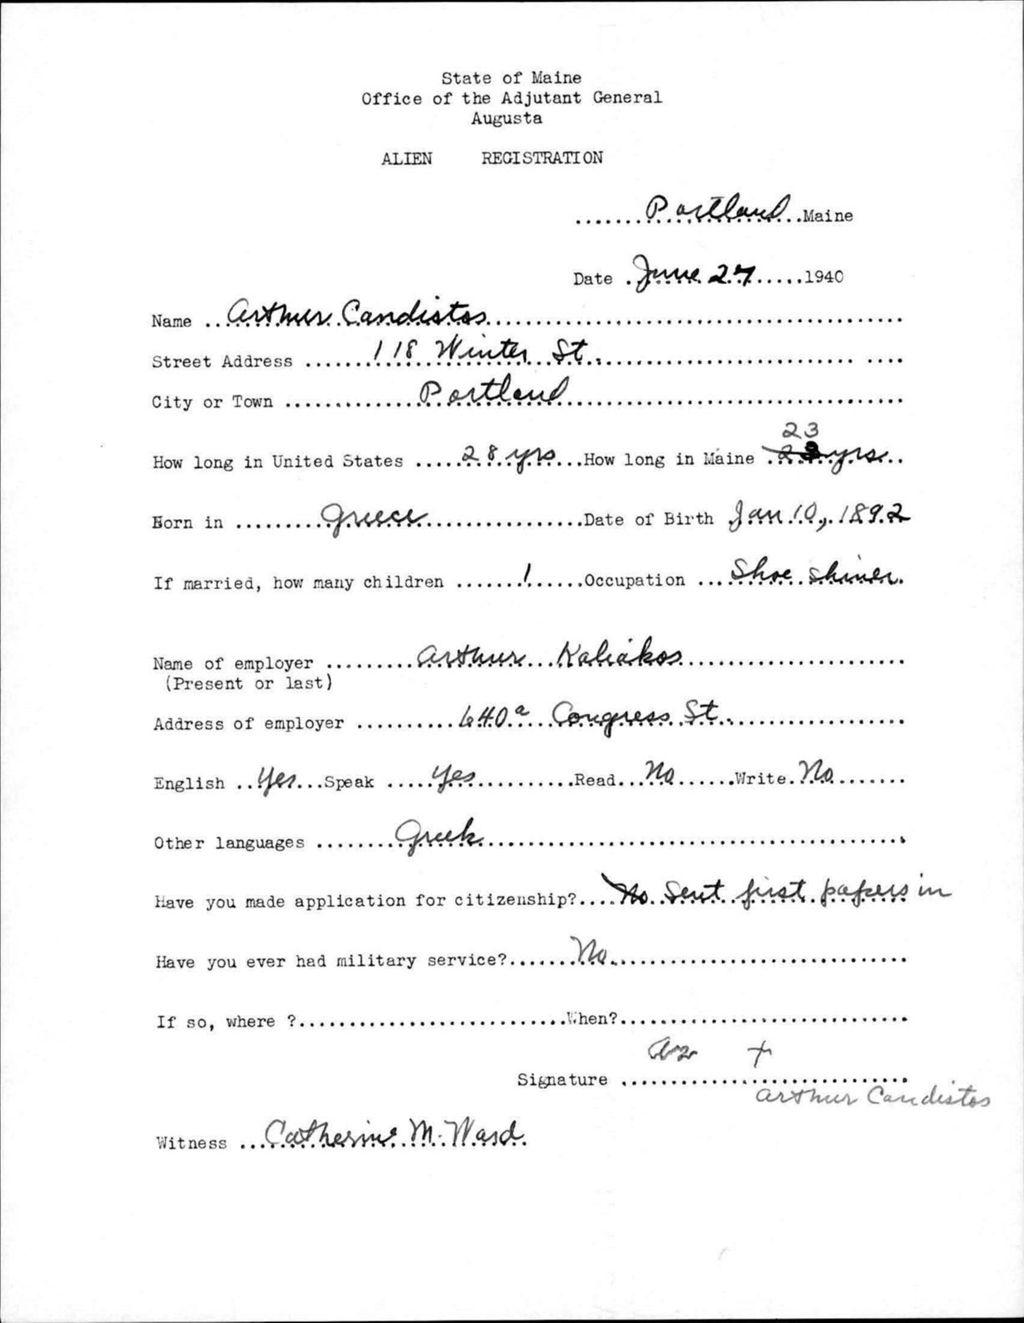 State of Maine
Office of the Adjutant General
Augusta
ALIEN REGISTRATION
.......Portland..Maine
Date .June 27.....1940
Name ..Arthur Candistos..........................................
Street Address .......118 Winter St...............................
City or Town ..............Portland...................................
23
How long in United States .....28 yrs...How long in Maine .23 yrs...
Born in .........Greece................Date of Birth Jan 10, 1892
If married, how many children .......1......Occupation ...Shoe shiner.
Name of employer .........Arthur Kaliakos.......................
(Present or last)
Address of employer ..........640a Congress St...................
English ..Yes...Speak .....Yes...........Read...No......Write.No.......
Other languages ........Greek...........................................
Have you made application for citizenship?....No. Sent first papers in
Have you ever had military service?.......No...............................
If so, where ?...........................When?.............................
+
Signature ..............................
Arthur Candistos
Witness ...Catherine M. Ward.